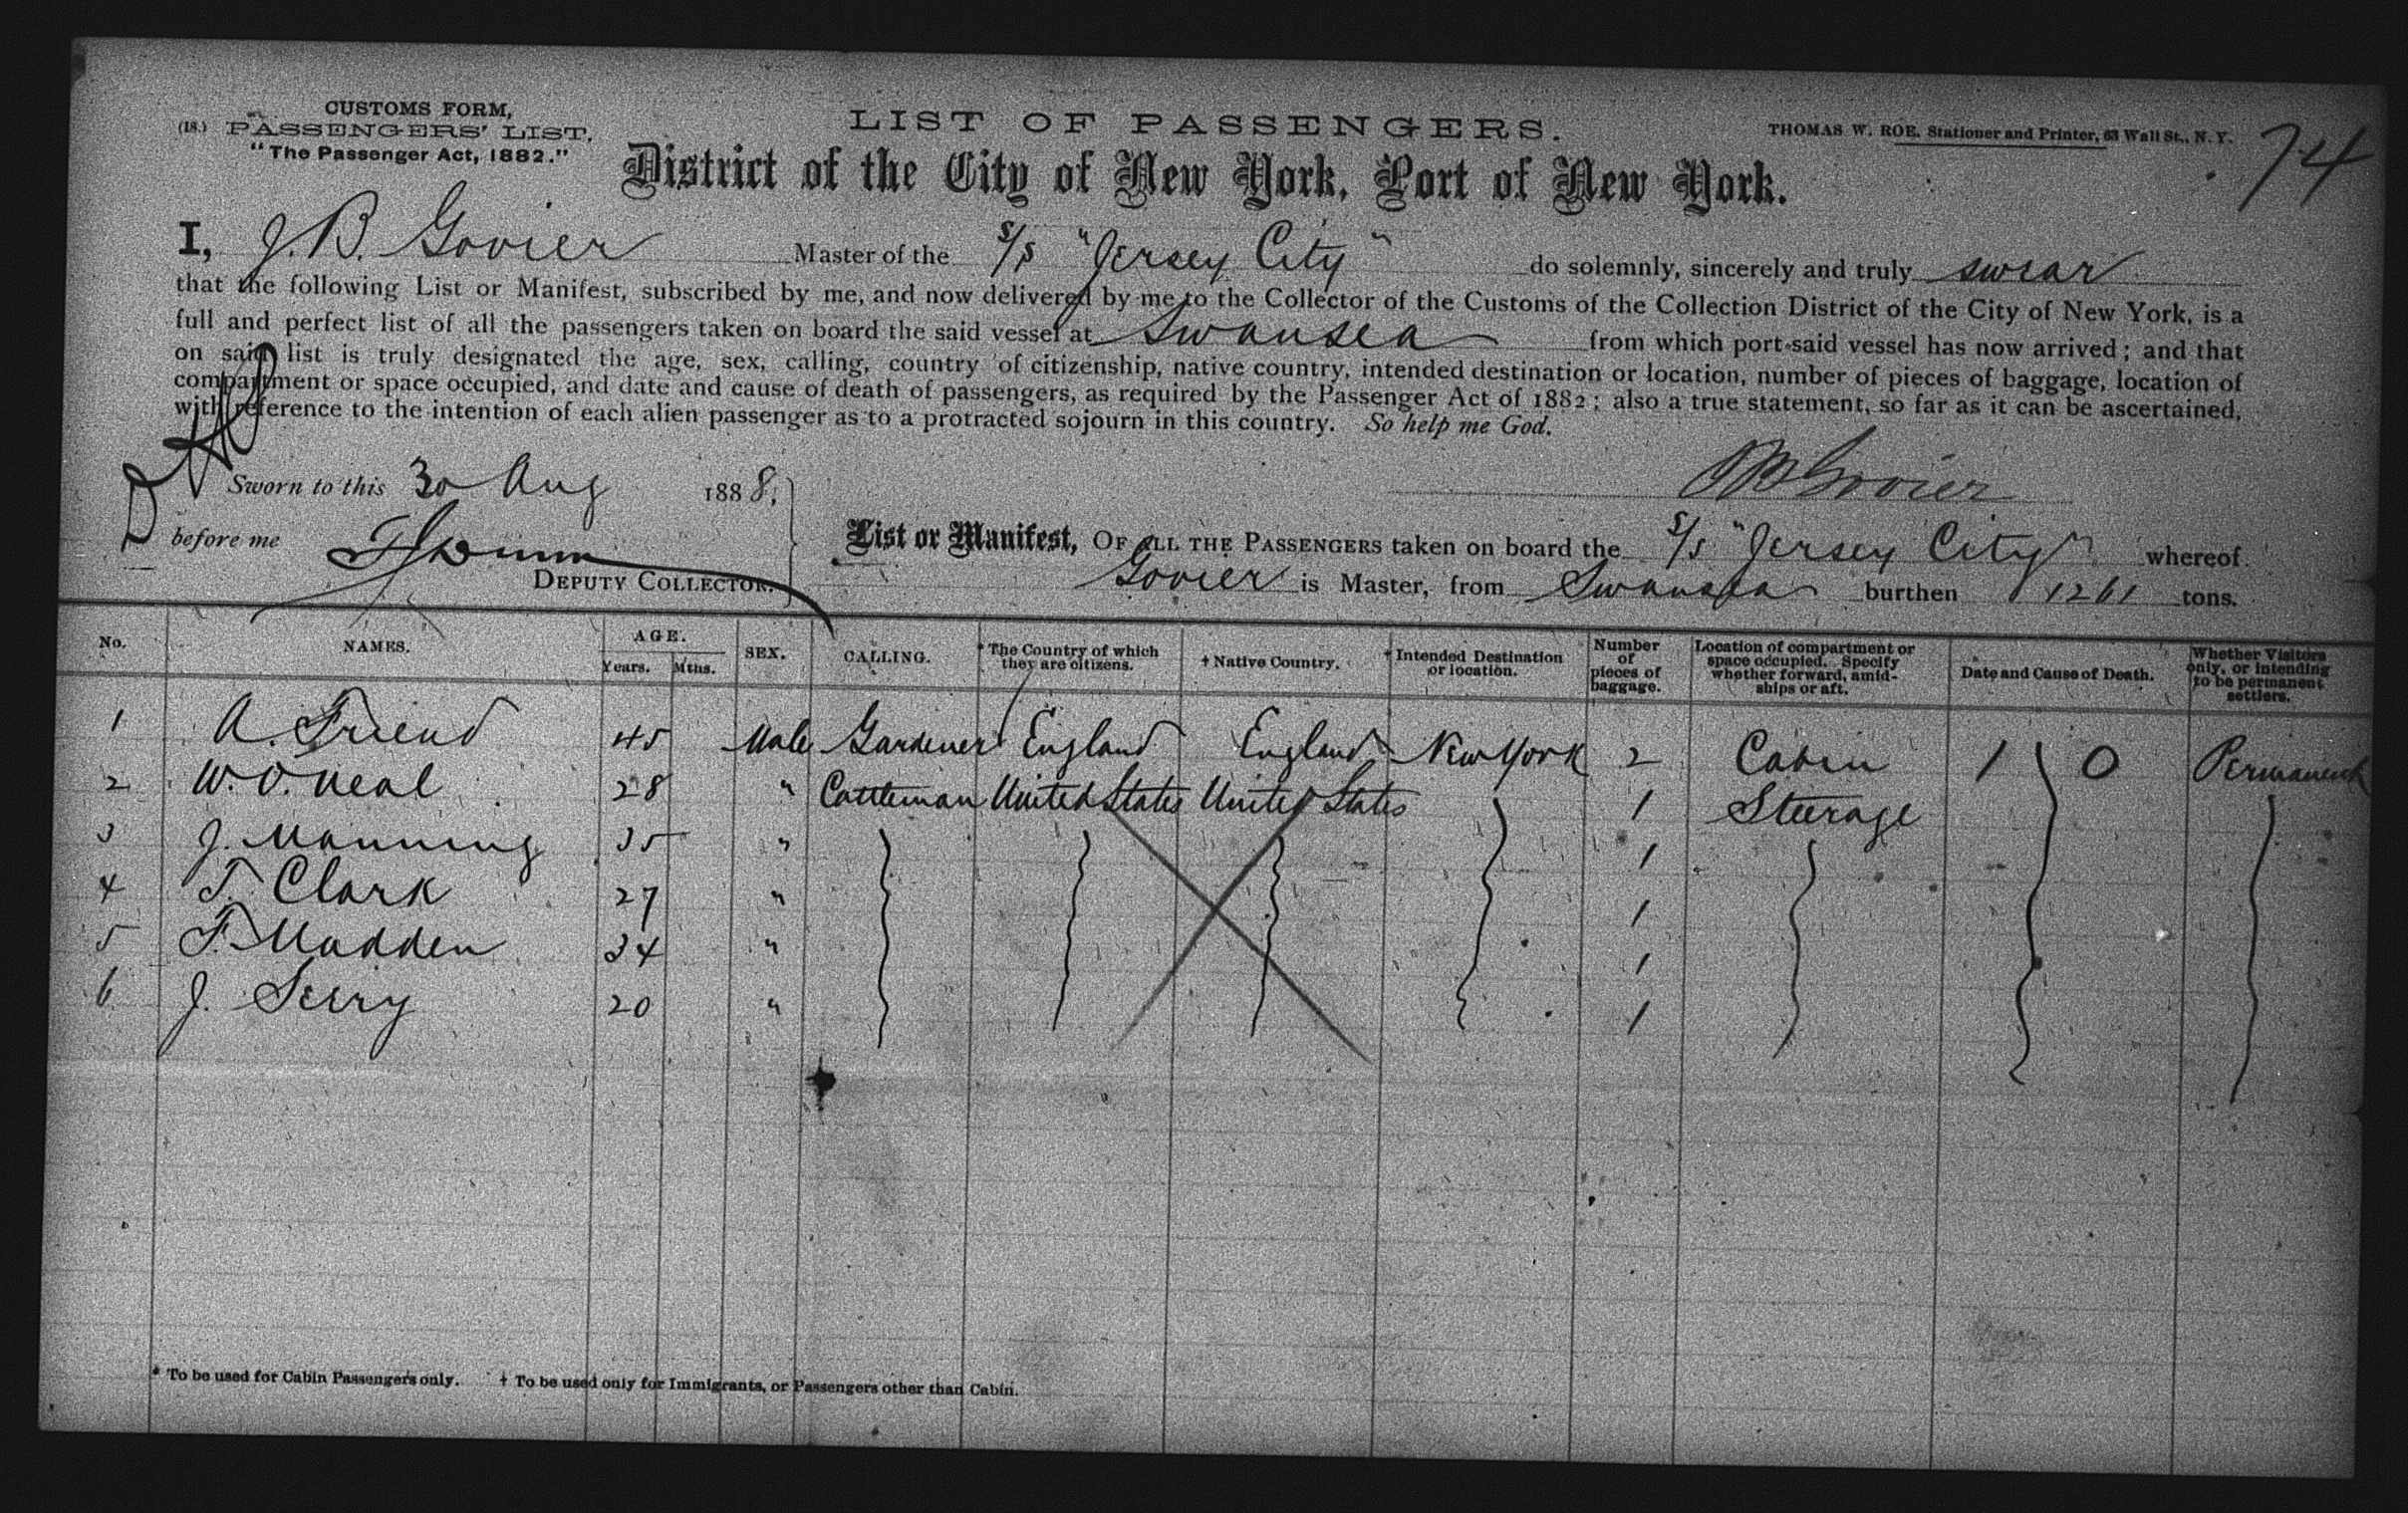 CUSTOMS FORM,
(18.) PASSENGERS' LIST.
"The Passenger Act, 1882."
LIST OF PASSENGERS.
THOMAS W. ROE, Stationer and Printer, 63 Wall St., N. Y.
74
District of the City of New York, Port of New York.
I, J. B. Govier Master of the S/S "Jersey City" do solemnly, sincerely and truly swear
that the following List or Manifest, subscribed by me, and now delivered by me to the Collector of the Customs of the Collection District of the City of New York, is a
full and perfect list of all the passengers taken on board the said vessel at Swansea from which port said vessel has now arrived; and that
on said list is truly designated the age, sex, calling, country of citizenship, native country, intended destination or location, number of pieces of baggage, location of
compartment or space occupied, and date and cause of death of passengers, as required by the Passenger Act of 1882; also a true statement, so far as it can be ascertained,
with reference to the intention of each alien passenger as to a protracted sojourn in this country. So help me God.
Sworn to this 30 Aug 1888,
J B Govier
before me
DEPUTY COLLECTOR.
List or Manifest, OF ALL THE PASSENGERS taken on board the S/S "Jersey City" whereof
Govier is Master, from Swansea burthen 1261 tons.
No. NAMES. AGE. Years. Mths. SEX. CALLING. † The Country of which they are citizens. † Native Country. † Intended Destination or location. Number of pieces of baggage. Location of compartment or space occupied. Specify whether forward, amidships or aft. Date and Cause of Death. Whether Visitors only, or intending to be permanent settlers.
1 A. Friend 45 Male Gardener England England New York 2 Cabin 1 0 Permanent
2 W. O. Neal 28 " Cattleman United States United States 1 Steerage
3 J. Manning 35 " 1
4 T. Clark 27 " 1
5 F. Madden 34 " 1
6 J. Serry 20 " 1
* To be used for Cabin Passengers only. † To be used only for Immigrants, or Passengers other than Cabin.